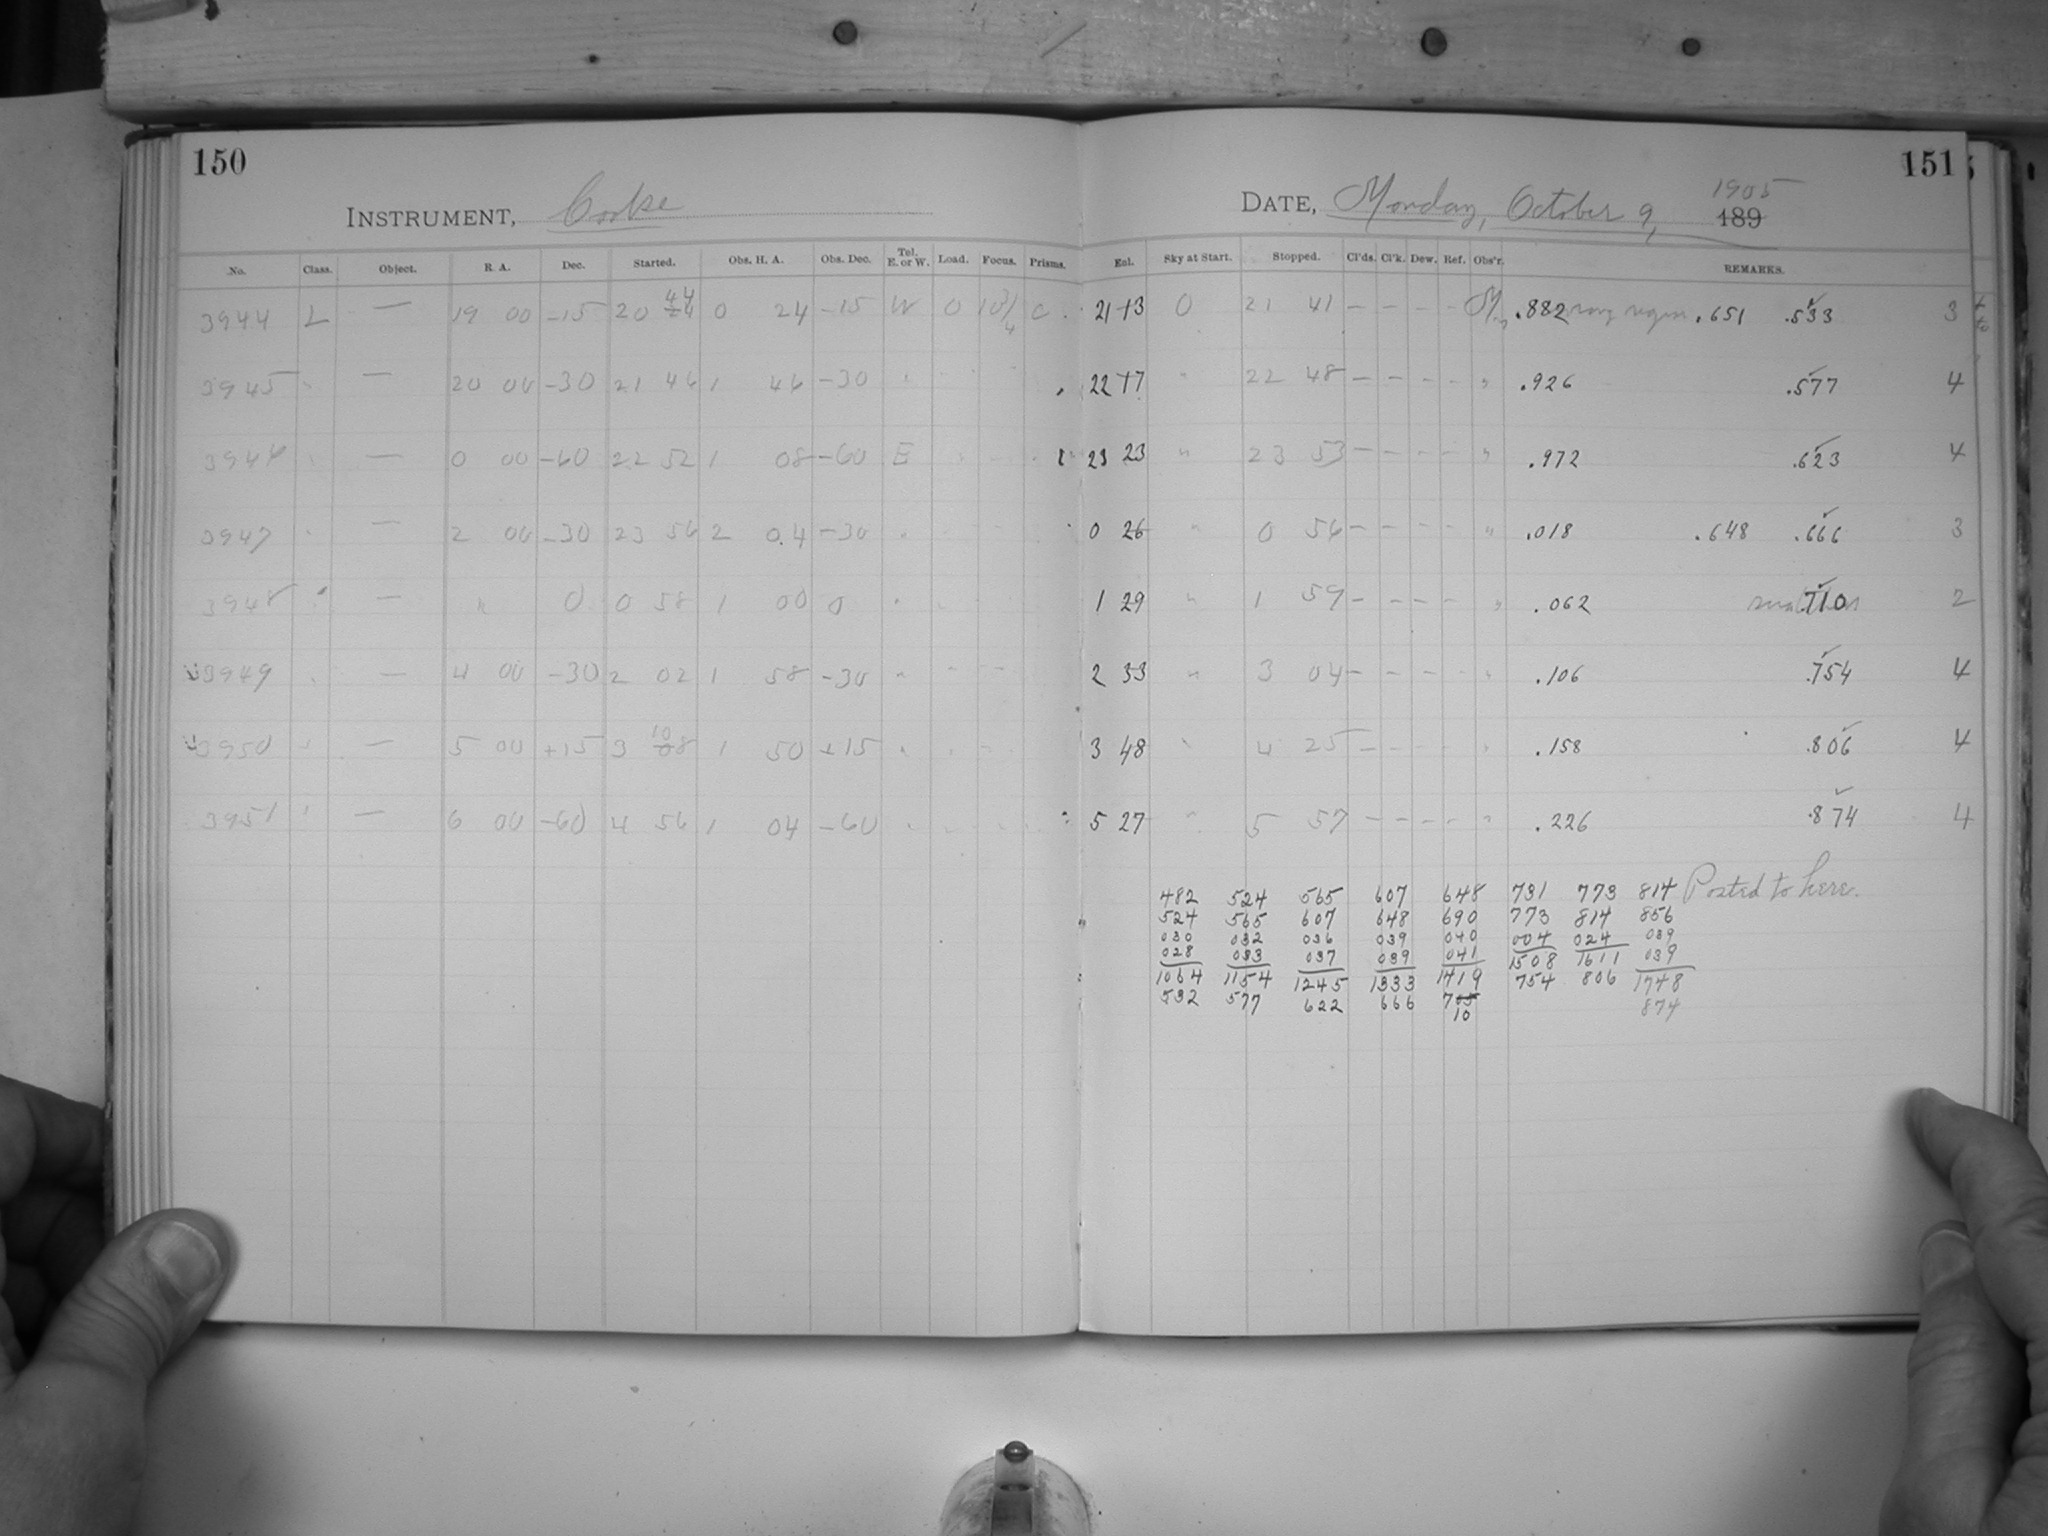 150
INSTRUMENT, Cooke
No. Class. Object. R A. Dec. Started. Obs. H. A. Obs. Dec. Tel. E. or W. Load. Focus. Prisms.
3944 L — 19 00 -15 20 44 0 24 -15 W 0 10 3/4 C .
3945 " — 20 00 -30 21 46 1 46 -30 "
— 0 00 -60 22 52 1 08 -60 E
3947 " — 2 00 -30 23 56 2 04 -30 "
3948 " — " 0 0 58 1 00 0 "
3949 " — 4 00 -30 2 02 1 58 -30 "
3950 " — 5 00 +15 3 10 1 50 +15 "
3951 " — 6 00 -60 4 56 1 04 -60 "
151
DATE, Monday, October 9, 1905
189
Exl. Sky at Start. Stopped. Cl'ds. Cl'k. Dew. Ref. Obs'r. REMARKS.
21 13 0 21 41 — — — — .882 .651 .533 3
22 17 " 22 48 — — — — " .926 .577 4
23 23 " 23 53 — — — — " .972 .623 4
0 26 " 0 56 — — — — " .018 .648 .666 3
1 29 " 1 59 — — — — " .062 .710 2
2 33 " 3 04 — — — — " .106 .754 4
3 48 " 4 25 — — — — " .158 .806 4
5 27 " 5 57 — — — — " .226 .874 4
482 524 565 607 648 731 773 814 Posted to here.
524 565 607 648 690 773 814 856
030 032 036 039 040 004 024 039
028 033 037 039 041 1508 1611 039
1064 1154 1245 1333 1419 754 806 1748
532 577 622 666 705 874
10